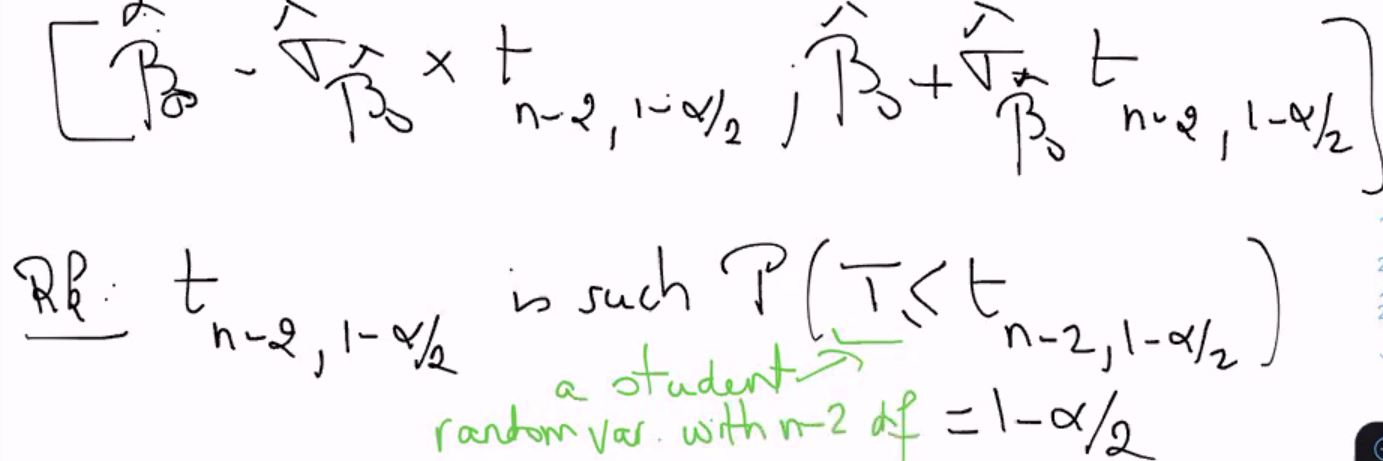 [β̂₀ - σ̂_β̂₀ × t_{n-2, 1-α/2} ; β̂₀ + σ̂_β̂₀ t_{n-2, 1-α/2}]
Rk: t_{n-2, 1-α/2} is such P(T < t_{n-2, 1-α/2})
a student
random var. with n-2 df = 1-α/2